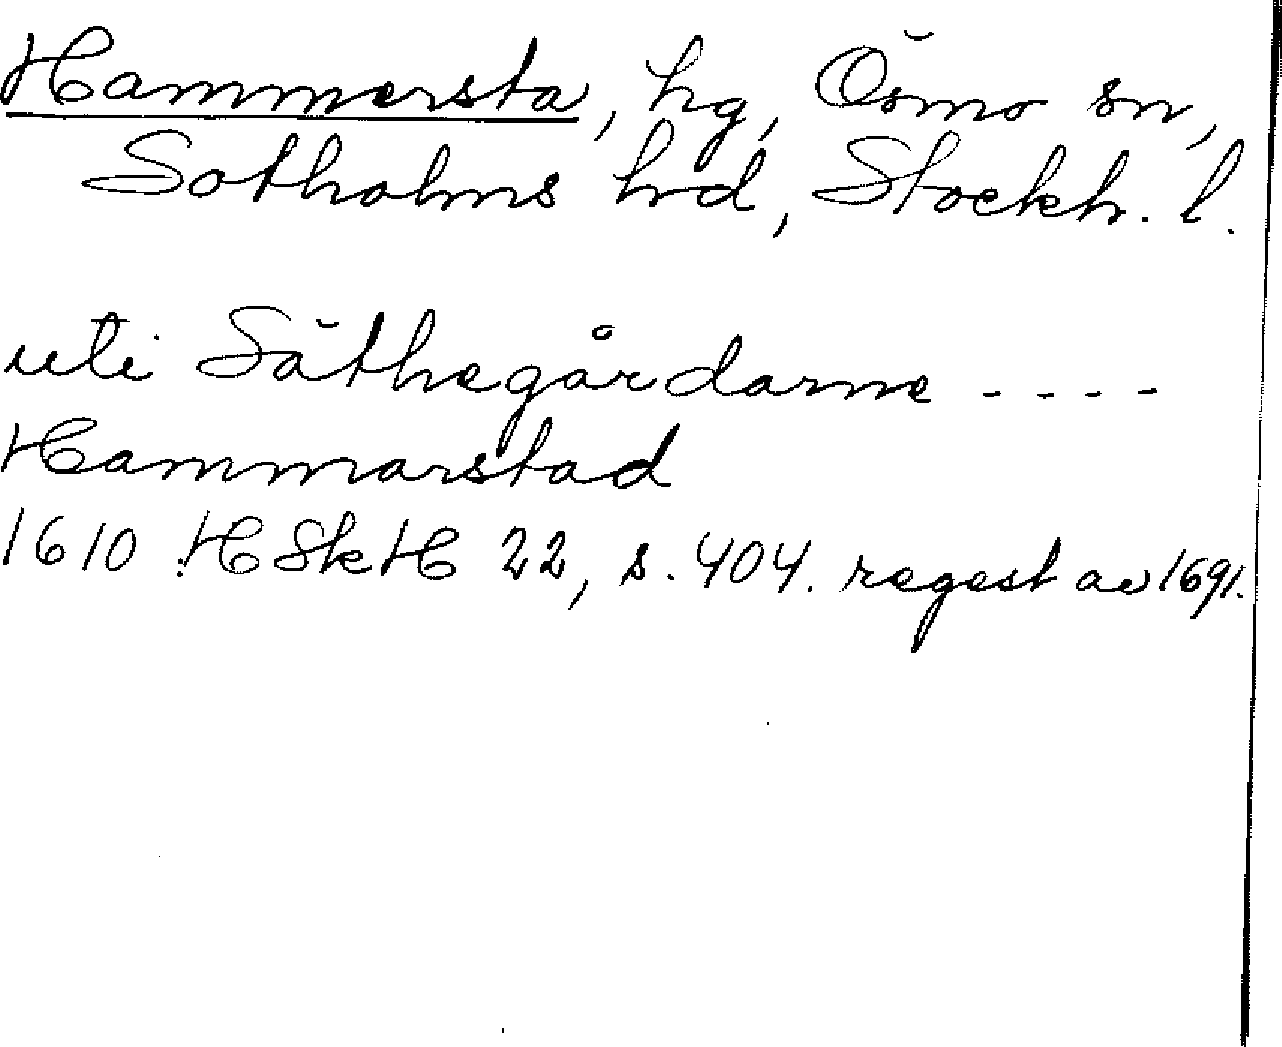 Hammersta, hg, Ösmo sn,
Sotholms hd, Stockh. l.
uti Säthegårdarne ----
Hammarstad
1610 HSkH 22, s. 404. regest av 1691.